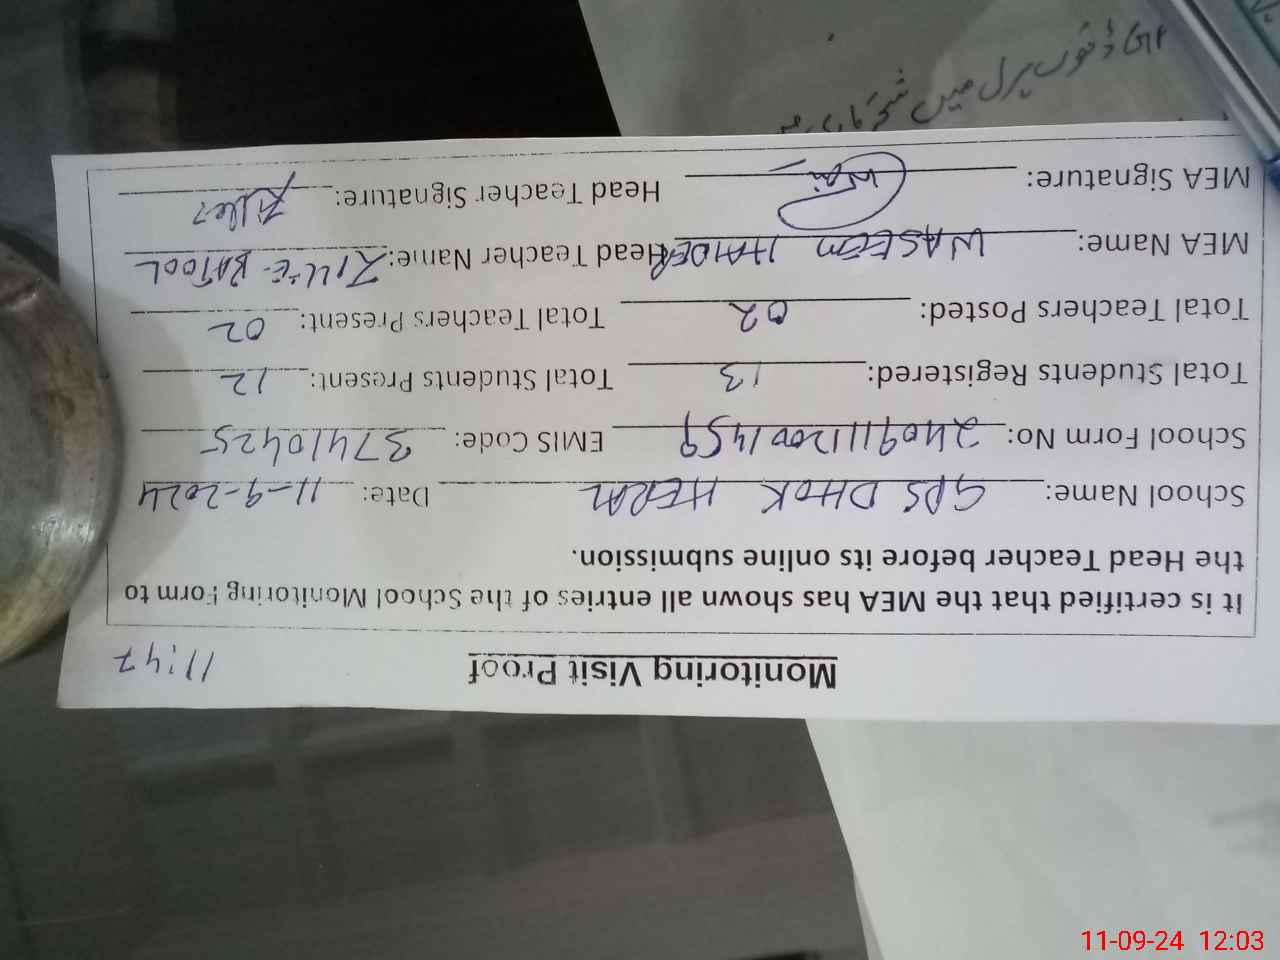 Monitoring Visit Proof 11:47
It is certified that the MEA has shown all entries of the School Monitoring Form to
the Head Teacher before its online submission.
School Name: GPS DHOK HERAL Date: 11-9-2024
School Form No: 24091112001459 EMIS Code: 37410425
Total Students Registered: 13 Total Students Present: 12
Total Teachers Posted: 02 Total Teachers Present: 02
MEA Name: WASEEM HAIDER Head Teacher Name: ZILL-E-BATOOL
MEA Signature: Head Teacher Signature:
11-09-24 12:03